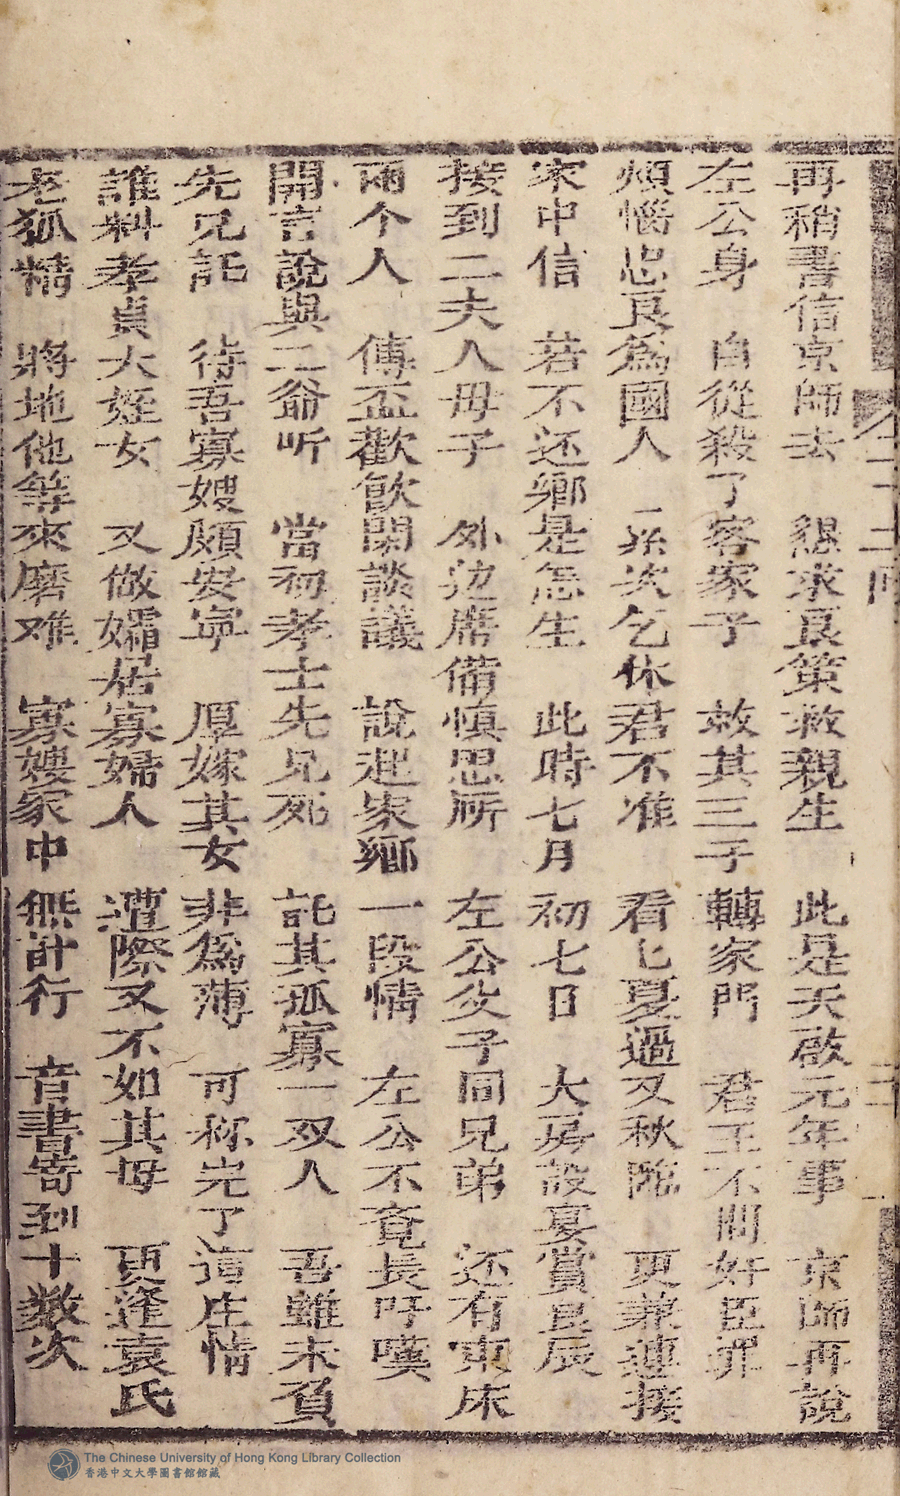 再稍書信京師去　懇求良策救親生　此是天啟元年事　京師再說
左公身　自從殺了客家子　效其三子轉家門　君王不問奸臣罪
煩惱忠良為國人　一呈次乞休君不准　看七夏過又秋臨　更兼連接
家中信　若不还鄉是怎生　此時七月初七日　大房設宴賞良辰
接到二夫人母子　外边席備慎思所　左公父子同兄弟　还有東床
兩个人　傳盃歡飲閑談議　說起家鄉一段情　左公不竟長吁嘆
開言說與二爺听　當初孝士先兄死　託其孤寡一双人　吾雖未負
先兄託　待吾寡嫂頗安寧　厚嫁其女非為薄　可称完了這庄情
誰料孝貞大姪女　又做孀居寡婦人　遭際又不如其母　更逢袁氏
老狐精　將地他等來磨难　寡嫂家中無計行　音書寄到十數次
The Chinese University of Hong Kong Library Collection
香港中文大學圖書館館藏